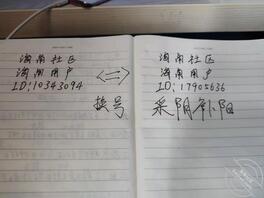 海南社区
海南用户
ID:10343094
换号
<=>
海南社区
海南用户
ID:17905636
采阴补阳